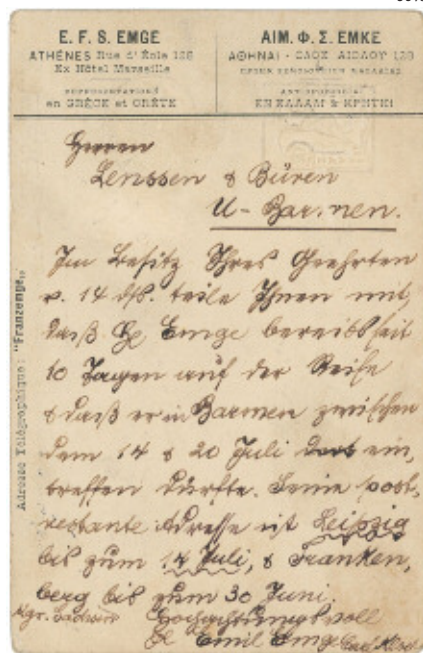 E. F. S. EMGE
ATHÈNES Rue d'Éole 128
Ex Hôtel Marseille
REPRÉSENTATIONS
en GRÈCE et CRÈTE
ΑΙΜ. Φ. Σ. ΕΜΚΕ
ΑΘΗΝΑΙ - ΟΔΟΣ ΑΙΟΛΟΥ 128
ΕΝ ΕΛΛΑΔΙ & ΚΡΗΤΗ
Adresse Télégraphique: "Franzemge"
Herren
Lenssen & Büren
U-Barmen.
Im Besitz Ihres Geehrten
v. 14 ds. teile Ihnen mit,
daß H. Emge bereits seit
10 Tagen auf der Reise
& daß er in Barmen zwischen
dem 14 & 20 Juli dort ein,
treffen dürfte. Seine post,
restante Adresse ist Leipzig
bis zum 14 Juli, & Franken,
berg bis zum 30 Juni.
Kgr. Sachsen Hochachtungsvoll
Emil Emge